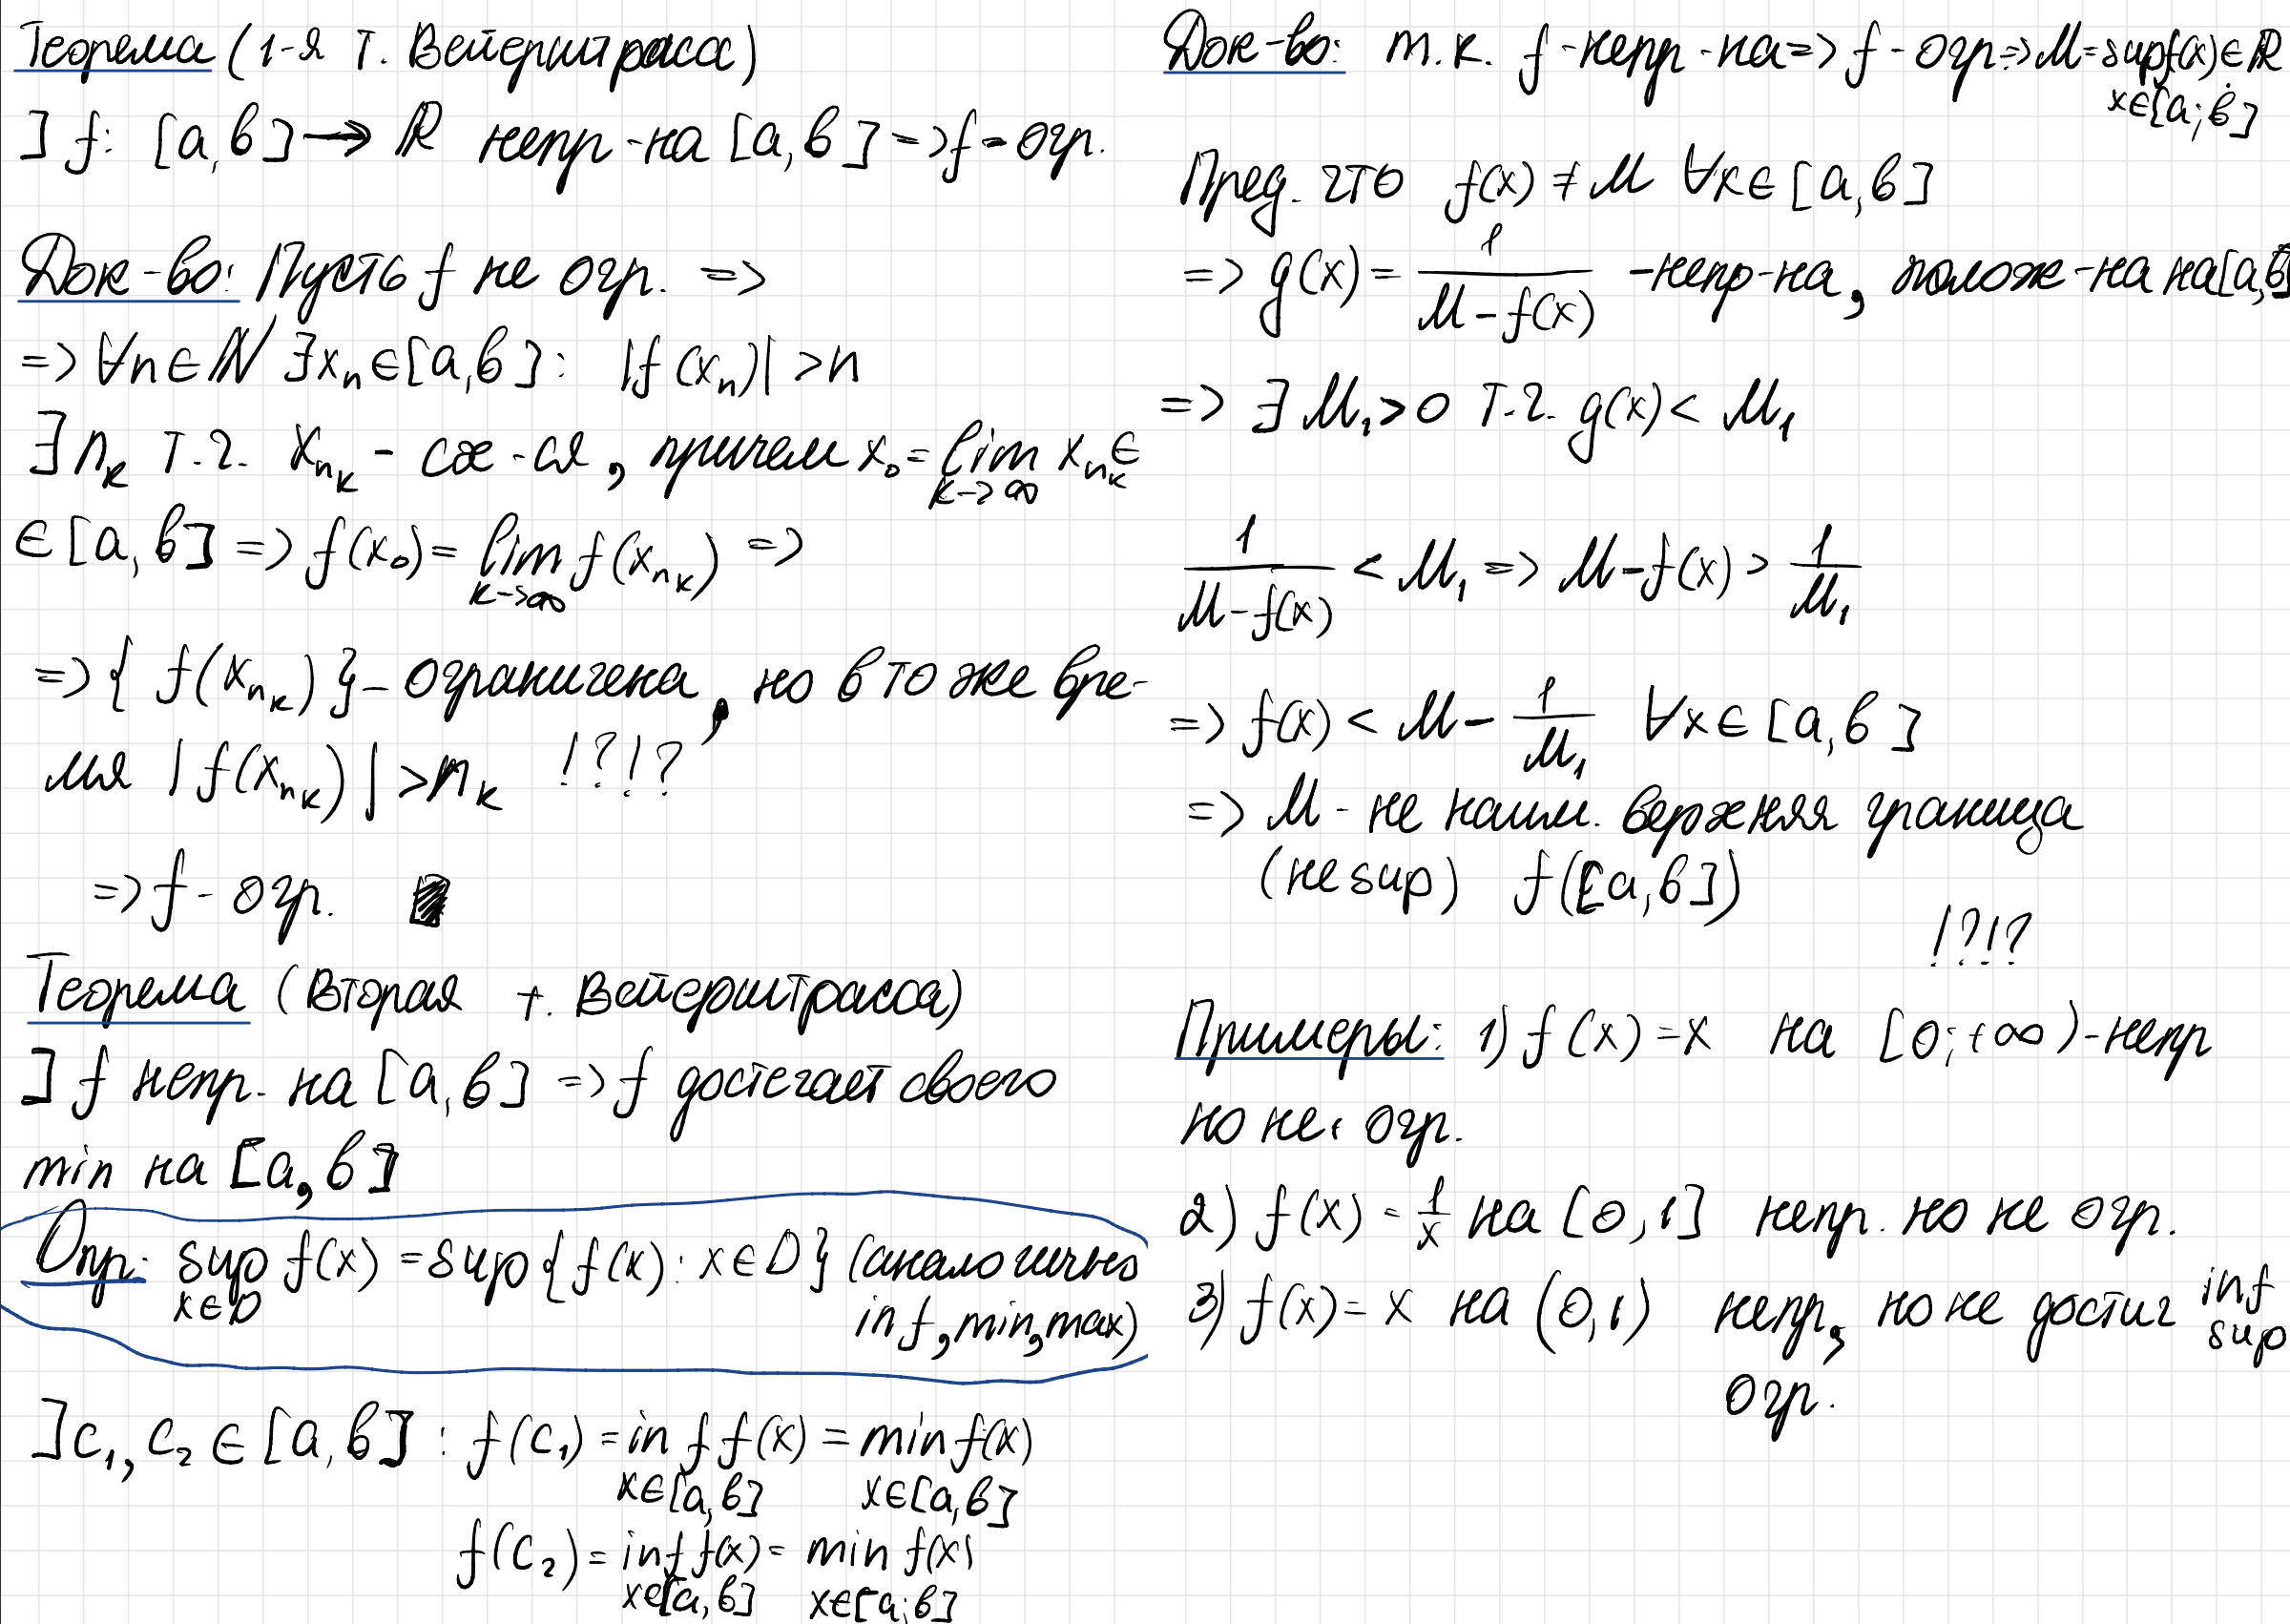 Теорема (1-я т. Вейерштрасса)
] f: [a, b] → ℝ непр-на [a, b] => f - огр.
Док-во: Пусть f не огр. =>
=> ∀n ∈ ℕ ∃x_n ∈ [a, b]: |f(x_n)| > n
∃ n_k т.ч. x_{n_k} - сх-ся, причем x_0 = lim_{k->∞} x_{n_k} ∈
∈ [a, b] => f(x_0) = lim_{k->∞} f(x_{n_k}) =>
=> { f(x_{n_k}) } - ограничена, но в то же вре-
мя |f(x_{n_k})| > n_k !?!?
=> f - огр.
Теорема (Вторая т. Вейерштрасса)
] f непр. на [a, b] => f достегает своего
min на [a, b]
Опр: sup_{x∈D} f(x) = sup{f(x): x ∈ D} (аналогично
inf, min, max)
]c_1, c_2 ∈ [a, b] : f(c_1) = inf_{x∈[a, b]} f(x) = min_{x∈[a, b]} f(x)
f(c_2) = inf_{x∈[a, b]} f(x) = min_{x∈[a; b]} f(x)
Док-во: т.к. f - непр-на => f - огр => M = sup_{x∈[a; b]} f(x) ∈ ℝ
Пред. что f(x) ≠ M ∀x ∈ [a, b]
=> g(x) = 1/(M - f(x)) - непр-на, полож-на на [a, b]
=> ∃ M_1 > 0 т.ч. g(x) < M_1
1/(M - f(x)) < M_1 => M - f(x) > 1/M_1
=> f(x) < M - 1/M_1 ∀x ∈ [a, b]
=> M - не наим. верхняя граница
(не sup) f([a, b])
!?!?
Примеры: 1) f(x) = x на [0; +∞) - непр
но не огр.
2) f(x) = 1/x на [0, 1] непр. но не огр.
3) f(x) = x на (0, 1) непр, но не достиг inf sup
огр.